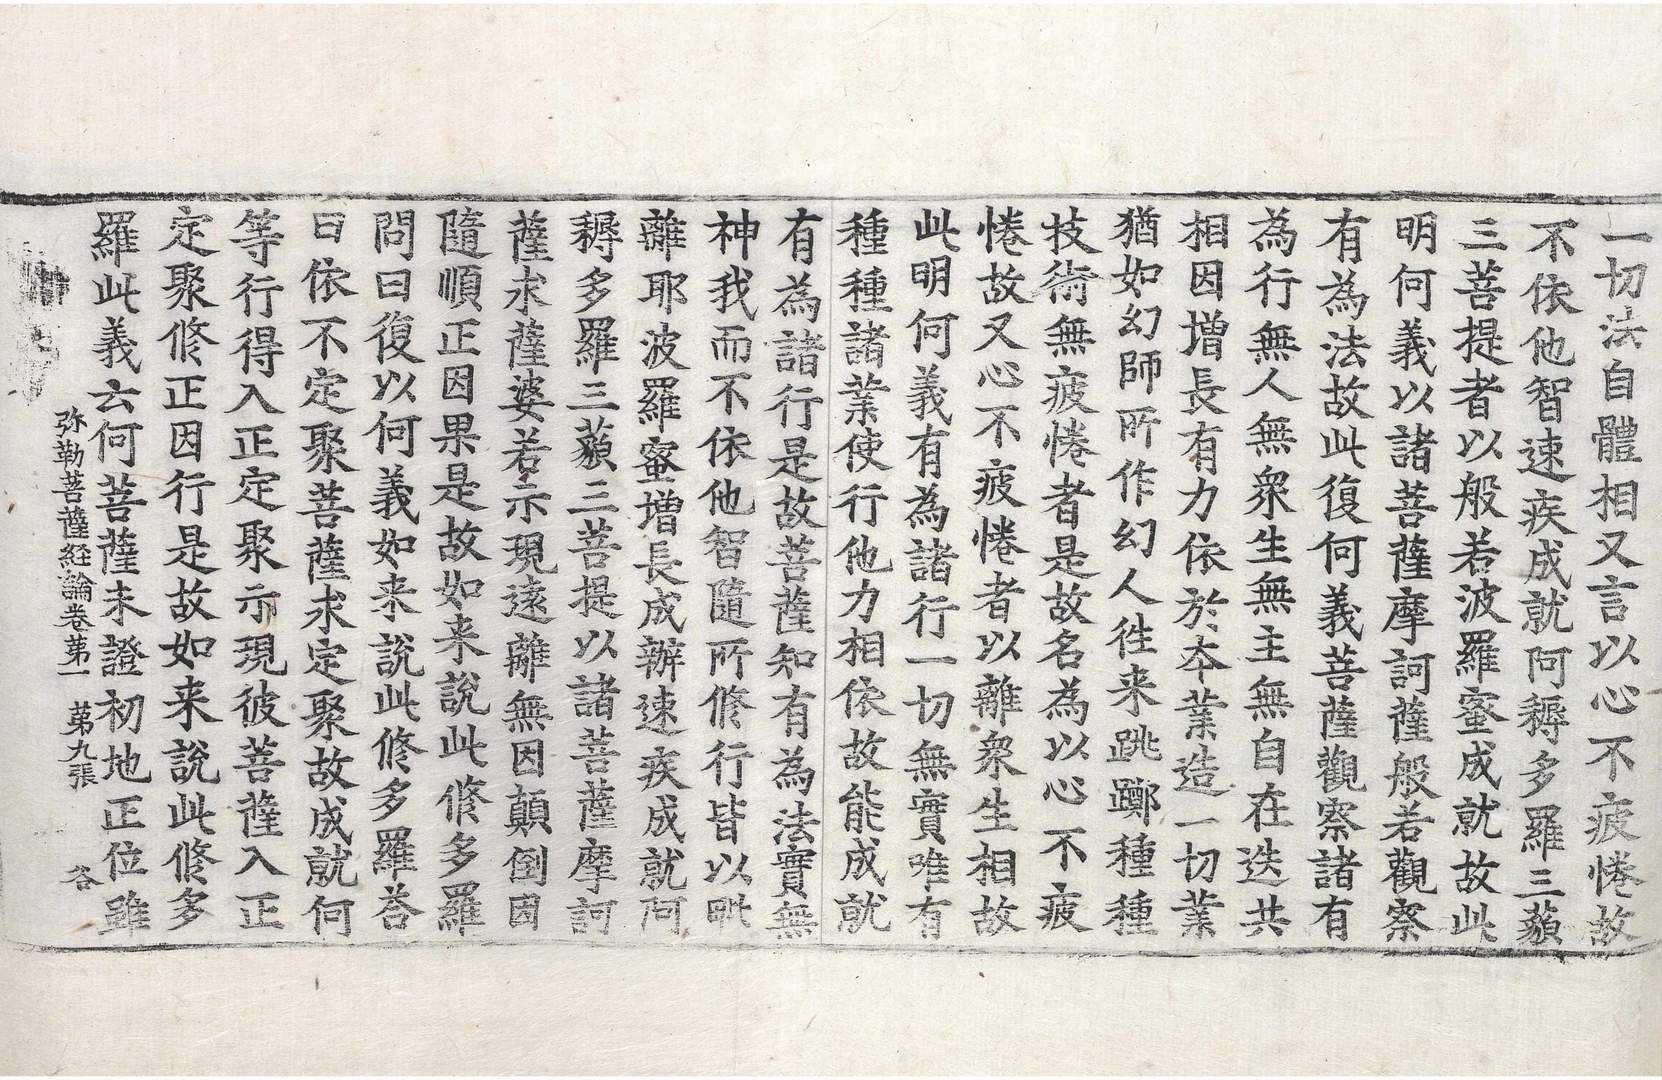 一切法自體相又言以心不疲惓故
不依他智速疾成就阿耨多羅三藐
三菩提者以般若波羅蜜成就故此
明何義以諸菩薩摩訶薩般若觀察
有為法故此復何義菩薩觀察諸有
為行無人無衆生無主無自在迭共
相因增長有力依於夲業造一切業
猶如幻師所作幻人徃来跳躑種種
技術無疲惓者是故名為以心不疲
惓故又心不疲惓者以離衆生相故
此明何義有為諸行一切無實唯有
種種諸業使行他力相依故能成就
有為諸行是故菩薩知有為法實無
神我而不依他智隨所修行皆以毗
離耶波羅蜜增長成辦速疾成就阿
耨多羅三藐三菩提以諸菩薩摩訶
薩求薩婆若示現遠離無因顛倒因
隨順正因果是故如来說此修多羅
問曰復以何義如来說此修多羅荅
曰依不定聚菩薩求定聚故成就何
等行得入正定聚示現彼菩薩入正
定聚修正因行是故如来說此修多
羅此義云何菩薩未證初地正位雖
弥勒菩薩経論卷苐一 苐九張 谷